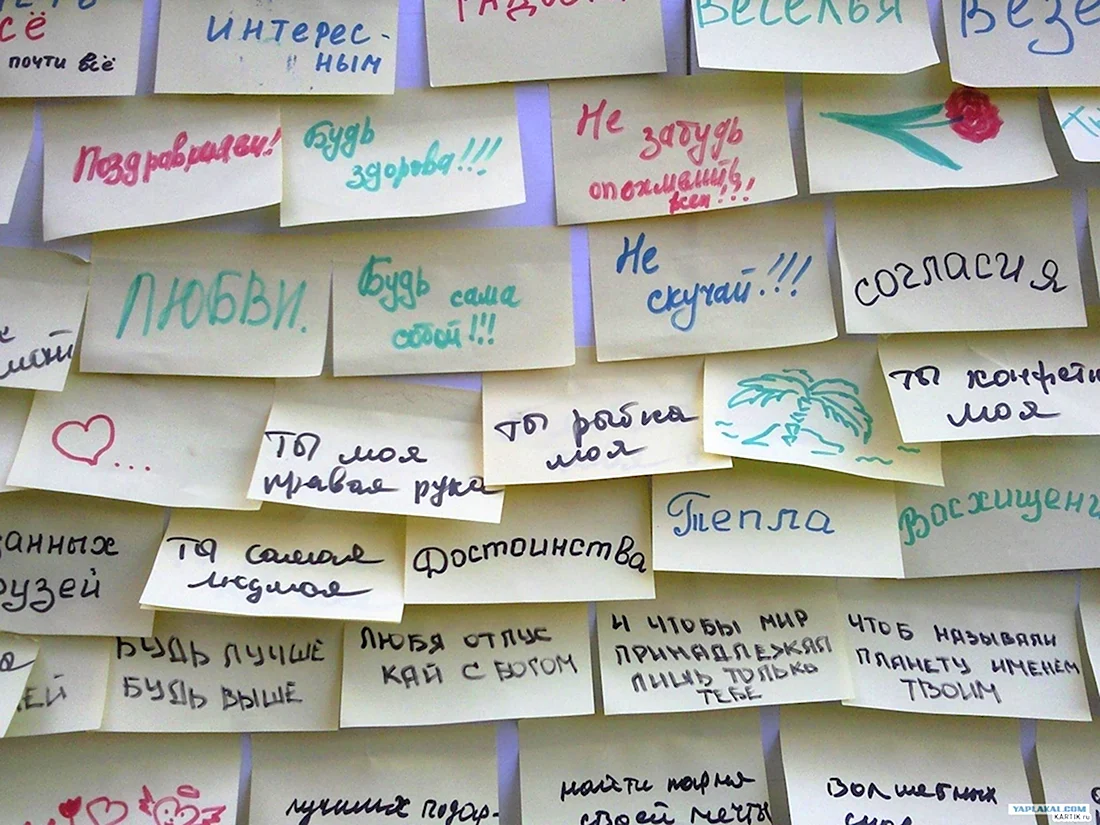 сё
почти всё
интерес-
ным
радости
веселья
везе
Поздравляем!
Будь
здорова!!!
Не
забудь
опохмелить
всех!!!
ЛЮБВИ.
Будь сама
собой!!!
Не
скучай!!!
согласия
...
ты моя
правая рука
ты рыбка
моя
ты конфетк
моя
данных
рузей
ТЫ самая
людмая
Достоинства
Тепла
Восхищени
ей
БУДЬ ЛУЧШЕ
БУДЬ ВЫШЕ
ЛЮБЯ ОТПУС
КАЙ С БОГОМ
И ЧТОБЫ МИР
ПРИНАДЛЕЖАЛ
ЛИШЬ ТОЛЬКО
ТЕБЕ
ЧТОБ НАЗЫВАЛИ
ПЛАНЕТУ ИМЕНЕМ
ТВОИМ
лучших подар-
найти парня
своей мечты
волшебных
снов
YAPLAKAL.COM
KARTIK.ru